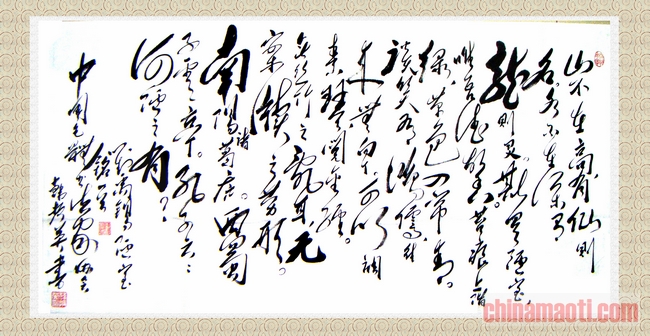 山不在高有仙则
名水不在深有
龙则灵斯是陋室
唯吾德馨苔痕上阶
绿草色入帘青
谈笑有鸿儒往
来无白丁可以调
素琴阅金经。
无丝竹之乱耳无
案牍之劳形。
南阳诸葛庐。西蜀
子云亭。孔子云：
何陋之有？
刘禹锡陋室
铭一首
中国毛体书法家
chinamaoti.com